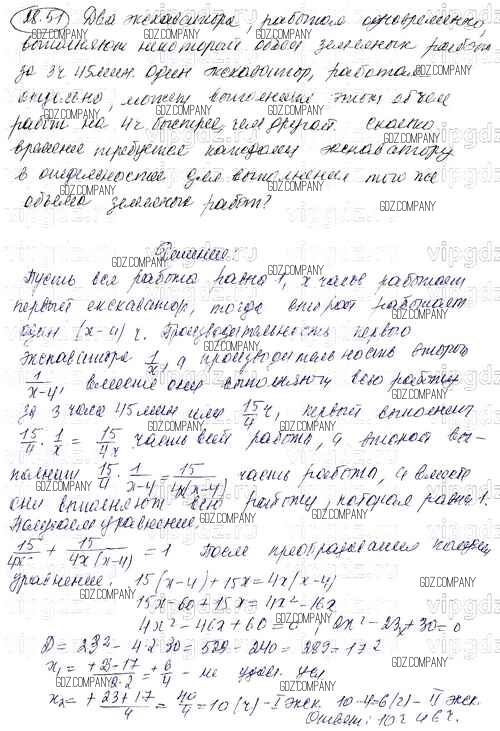 28.51) Два экскаватора, работая одновременно,
выполняют некоторый объем земляных работ
за 3ч 45мин. Один экскаватор, работая
отдельно, может выполнить этот объем
работ на 4ч быстрее, чем другой. Сколько
времени требуется каждому экскаватору
в отдельности для выполнения того же
объема земляных работ?
Решение:
Пусть вся работа равна 1, x часов работает
первый екскаватор, тогда второй работает
один (x-4) ч. Производительность первого
экскаватора 1/x, а производительность второго
1/(x-4), вместе они выполняют всю работу
за 3 часа 45мин или 15/4 ч, первый выполнит
15/4 · 1/x = 15/4x часть всей работы, а второй вы-
полнит 15/4 · 1/(x-4) = 15/4(x-4) часть работы, а вместе
они выполняют всю работу, которая равна 1.
Получаем уравнение:
15/4x + 15/4x(x-4) = 1 После преобразования получаем
уравнение: 15(x-4)+15x=4x(x-4)
15x-60+15x=4x²-16x
4x²-46x+60=0, 2x²-23x+30=0
D= 23²-4·2·30= 529-240=289=17²
x₁= +23-17/2·2 = +6/4 - не удовл. усл.
x₂= +23+17/4 = 40/4 = 10(ч) - I экск. 10-4=6(ч) - II экск.
Ответ: 10ч и 6ч.
GDZ.COMPANY
vipgdz.ru